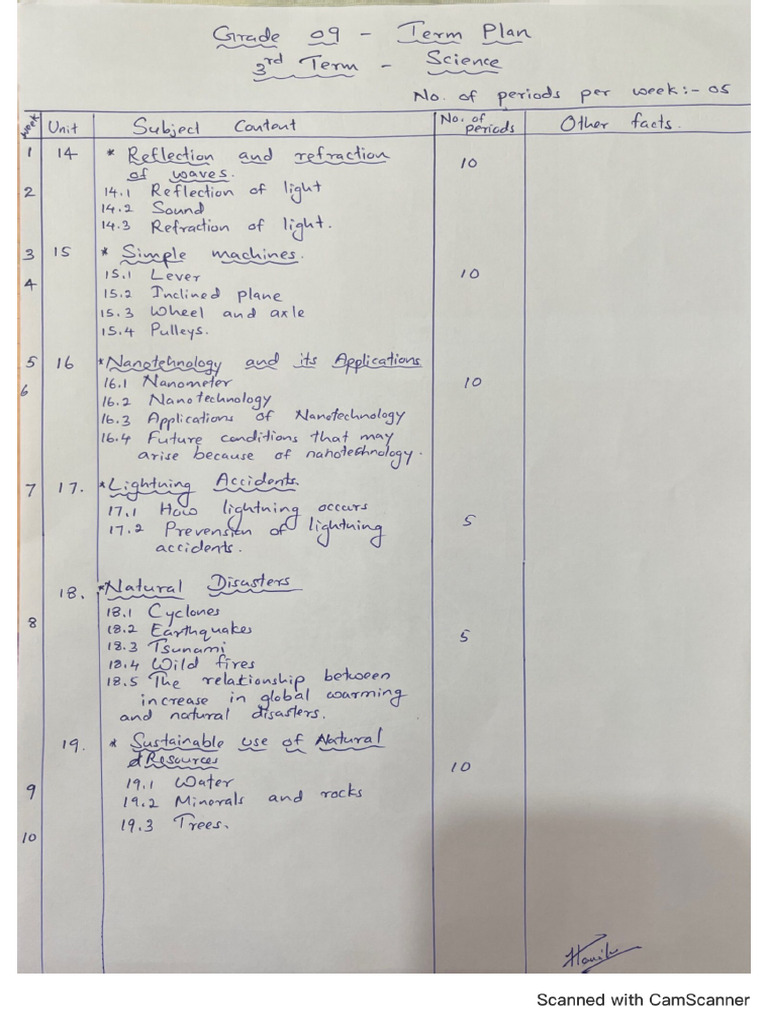 Grade 09 - Term Plan
3rd Term - Science
No. of periods per week:- 05
week Unit Subject Content No. of periods Other facts.
1 14 * Reflection and refraction 10
of waves.
2 14.1 Reflection of light
14.2 Sound
14.3 Refraction of light.
3 15 * Simple machines.
4 15.1 Lever 10
15.2 Inclined plane
15.3 Wheel and axle
15.4 Pulleys.
5 16 * Nanotechnology and its Applications
6 16.1 Nanometer 10
16.2 Nanotechnology
16.3 Applications of Nanotechnology
16.4 Future conditions that may
arise because of nanotechnology.
7 17. * Lightning Accidents
17.1 How lightning occurs
17.2 Prevension of lightning 5
accidents.
18. * Natural Disasters
8 18.1 Cyclones
18.2 Earthquakes 5
18.3 Tsunami
18.4 Wild fires
18.5 The relationship between
increase in global warming
and natural disasters.
19. * Sustainable use of Natural
Resources 10
9 19.1 Water
19.2 Minorals and rocks
10 19.3 Trees.
Scanned with CamScanner